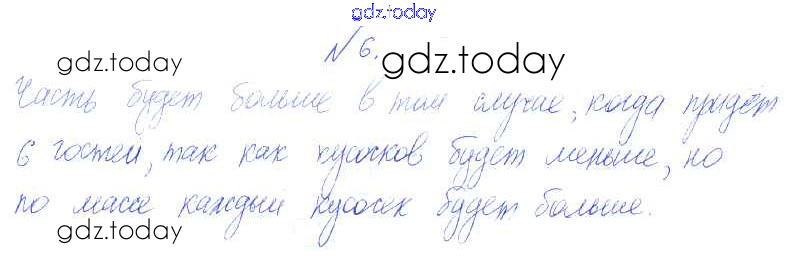 gdz.today
gdz.today
№ 6. gdz.today
Часть будет больше в том случае, когда придёт
6 гостей, так как кусочков будет меньше, но
по массе каждый кусочек будет больше.
gdz.today